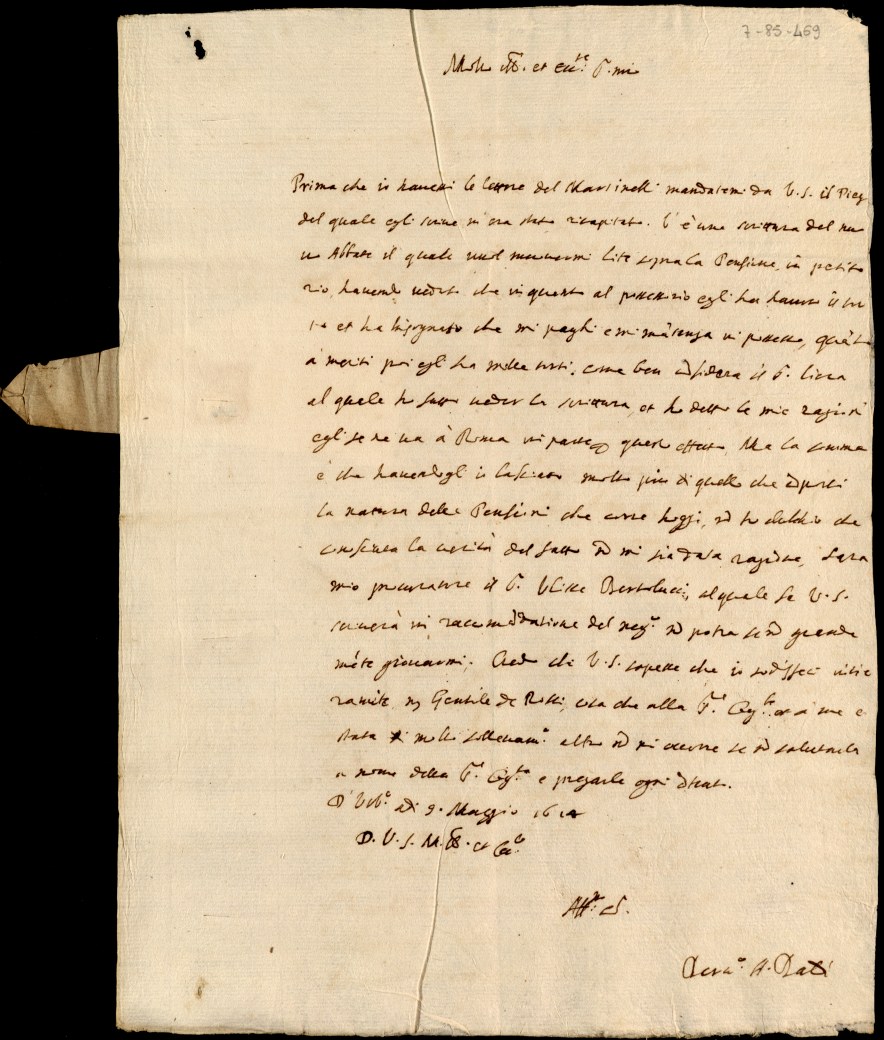 7-85-469
Molto Ill. et Ecc.te S. mio
Prima che io havessi le lettere del Martinelli mandatemi da V.S. il Pieg
del quale egli scrive m'era stato ricapitato. V'è una scrittura del nuo
vo Abbate il quale vuol movermi lite sopra la Pensione, in petito
rio, havendo veduto che in quanto al possessorio egli ha havuto il tor
to et ha bisognato che mi paghi e mi mãtenga in possesso, quãto
a meriti poi egli ha mille torti, come ben cõsidera il S.
al quale ho fatto veder la scrittura, et ho detto le mie ragioni
egli se ne va à Roma in parte quest effetto. Ma la somma
è che havendogli io lasciato molto più di quello che cõporti
la natura delle Pensioni che corre hoggi, nõ ho dubbio che
conosciuta la verità del fatto nõ mi sia data ragione, Sara
mio procuratore il S. Ulisse Bertolucci, al quale se V.S.
scriverà in raccomãdatione del neg.o nõ potra se nõ grande
mẽte giovarmi. Credo che V.S. sapesse che io sodisfeci
Gentile de Rossi, cosa che alla S.ra et a me è
stata di molto sollevam.to altro nõ mi occorre se nõ salutarla
a nome della S.ra e pregarle ogni cõtento.
D'Urb.o adi 9. Maggio 1614
D. V. S. M. Ill. et Ecc.te
Aff.mo